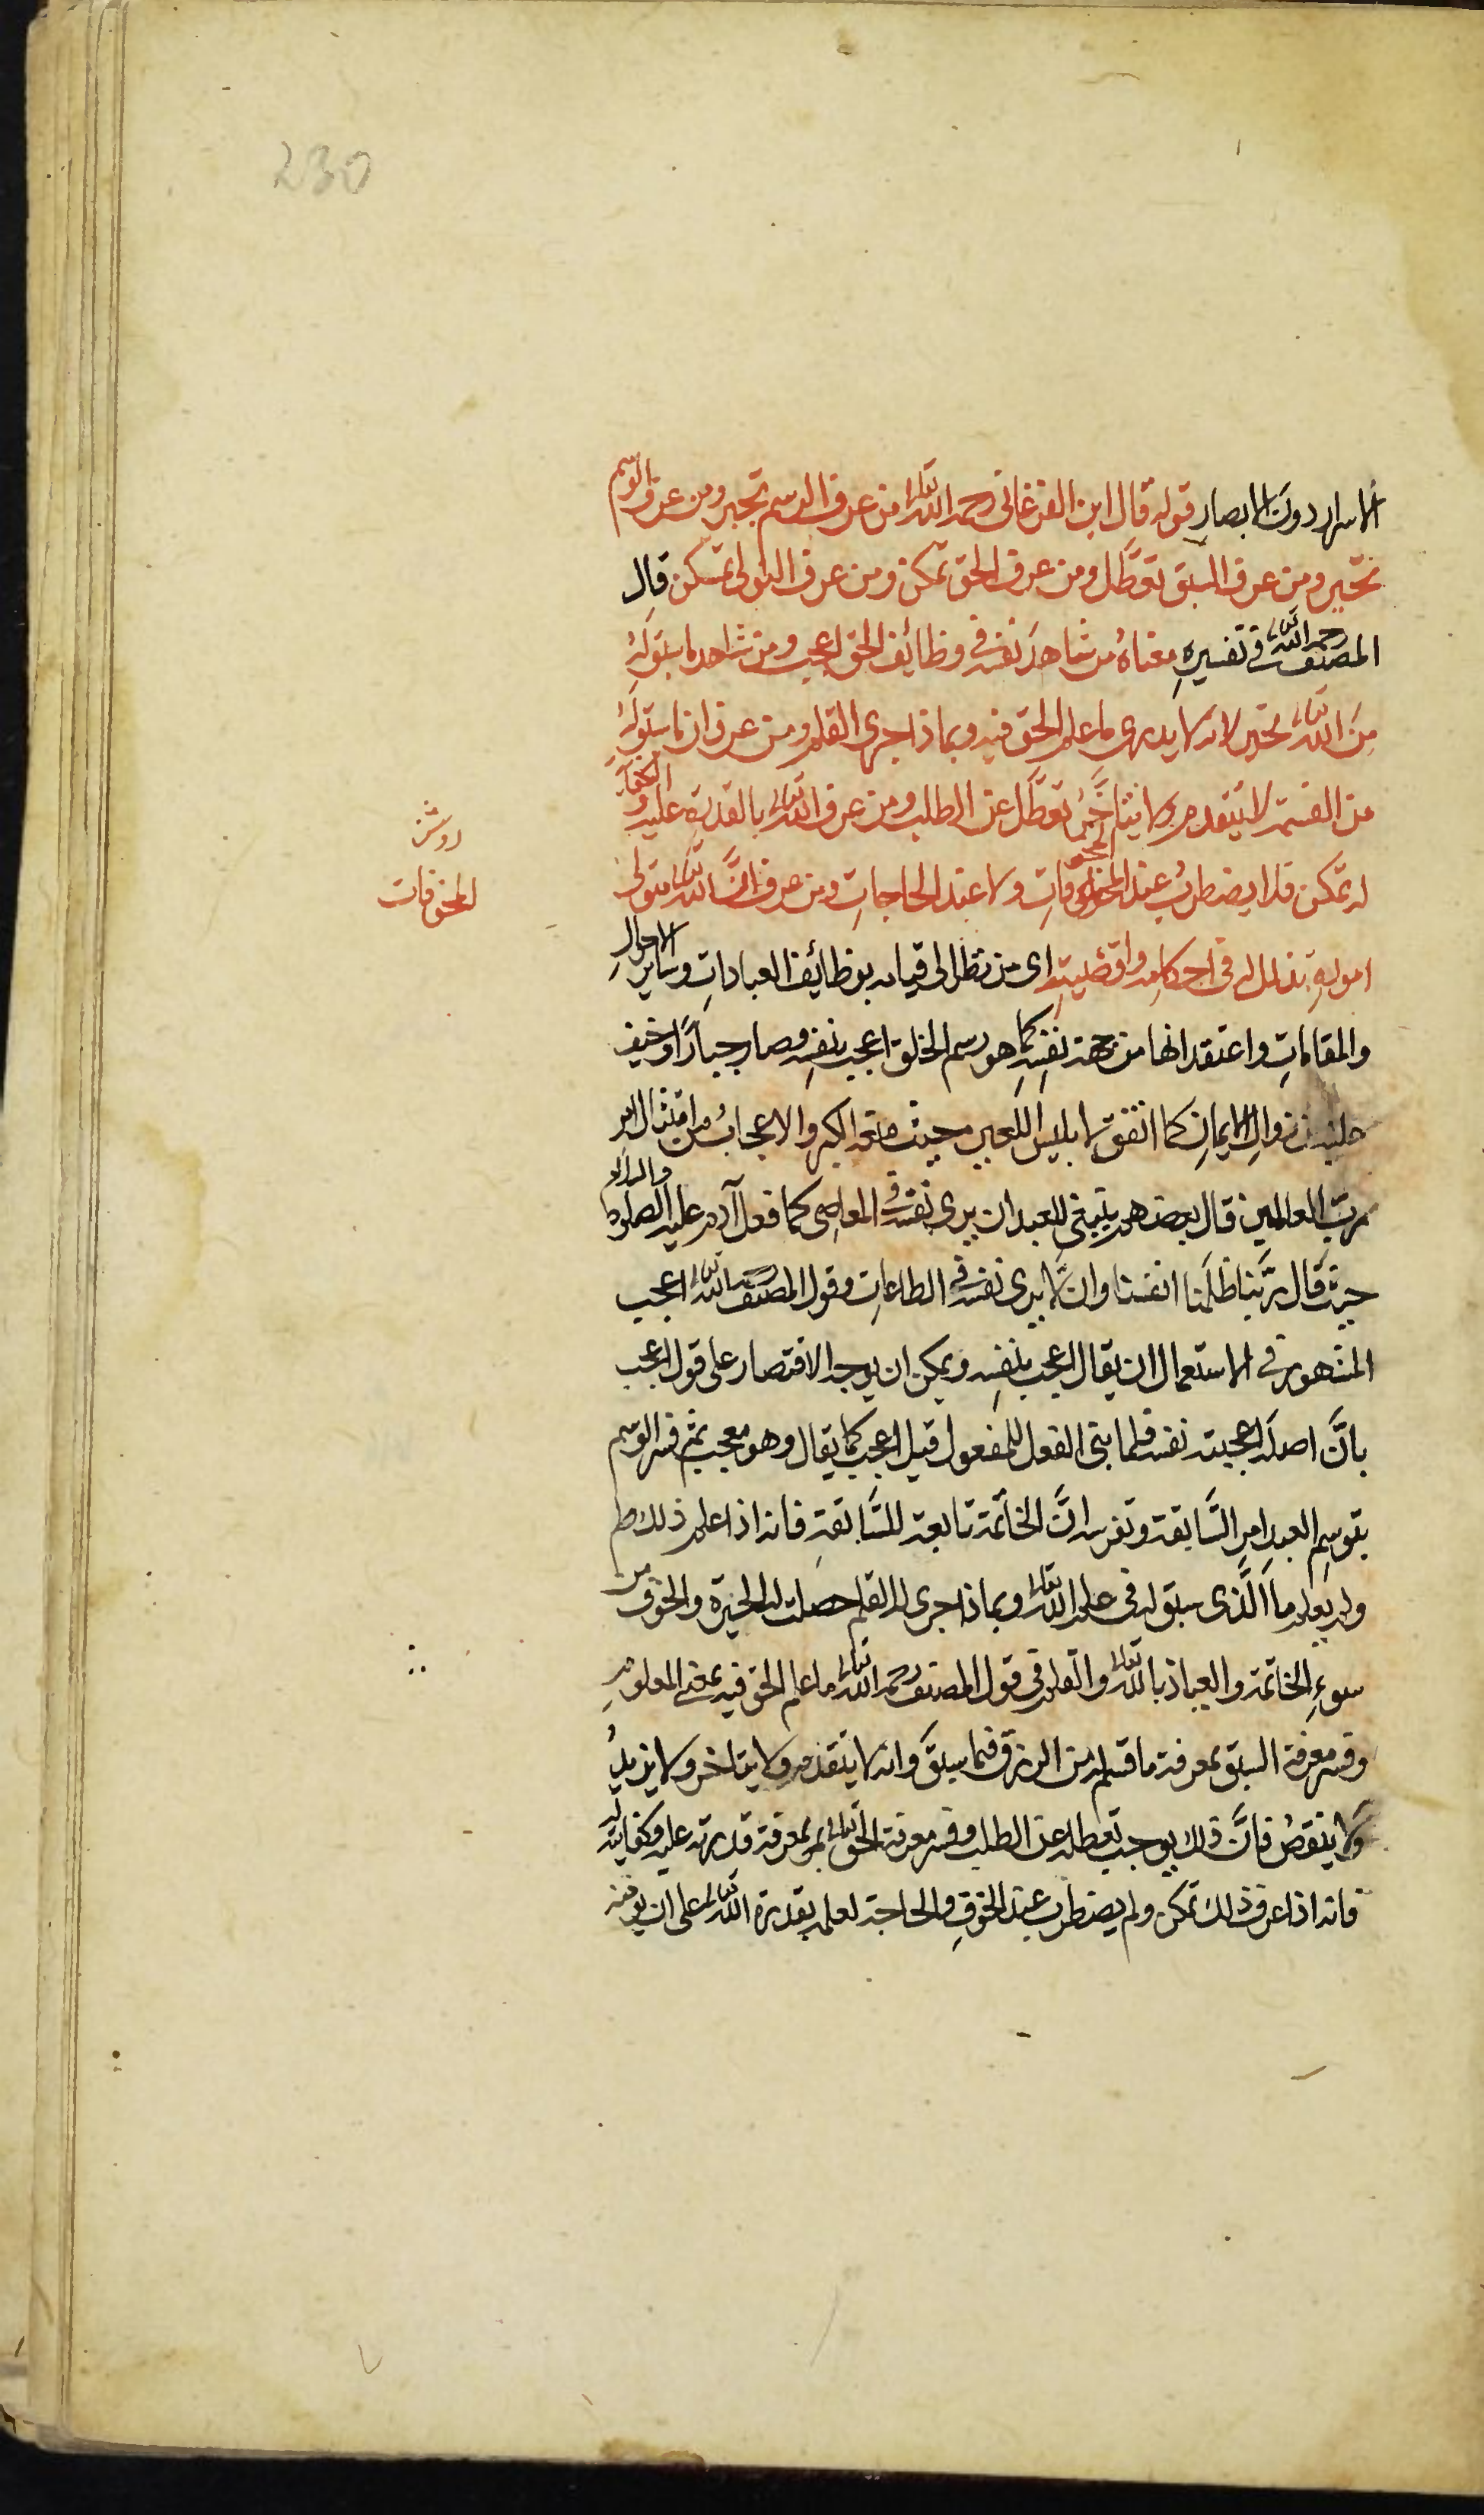 230
الاسرار دون الابصار قوله قال ابن الفرغانى رحمه الله تعالى من عرف الرسم تجبر ومن عرف الوسم
تحير ومن عرف السبق تعطَّل ومن عرف الحق تمكن ومن عرف المولى تمسكن قال
المصنف رحمه الله تعالى فى تفسيرهِ معناهُ من شاهدَ نفسَه فى وظائف الحق اعجب ومن شاهد ما سبق لهُ
مِنَ الله تعالى تحير لانه لا يدرى ما علم الحق فيه وبماذا جرى القلم ومن عرف ان ما سبق لهُ
من القسمة لا يتقدم ولا يتأخَّر تعطَّل عن الطلب ومن عرف الله تعالى بالقدرة عليه والكفاية
له تمكن فلا يضطربُ عند المخوفاتِ ولا عند الحاجاتِ ومن عرف انَّ الله تعالى متولى
امورهِ تذلل له فى احكامه واقضيتِه اى من نظر الى قيامه بوظائف العباداتِ وسائر الاحوالِ
والمقاماتِ واعتقد انها من جهة نفسِه كما هو رسم الخلق اعجب بنفسِه وصار جبارًا وخيف
عليه من زوال الايمانِ كما اتفق لابليس اللعين حيث منعه الكبر والاعجابُ من امتثال امر
ربّ العالمين قال بعضهم ينبغى للعبد ان يرى نفسه فى المعاصى كما فعل آدم عليه الصلوة والسلام
حيث قال ربَّنا ظلَمنا انفسنا وان لا يرى نفسه فى الطاعاتِ وقول المصنف رحمه الله تعالى اعجب
المشهور فى الاستعمال ان يقال اعجب بنفسِه ويمكن ان يوجه الاقتصار على قوله اعجب
بانَّ اصلَه اعجبته نفسه فلما بنى الفعل للمفعول قيل اعجب كما يقال وهو معجب ثم فسر الوسم
بتوسم العبدِ امرِ السَّابقة وتفرسه انَّ الخاتمة تابعة للسَّابقةِ فانه اذا علم ذلك
ولم يعلم ما الَّذى سبق له فى علم الله تعالى وبماذا جرى له القلم حصلت له الحيرة والخوف من
سوءِ الخاتمة والعياذ بالله تعالى والعلم فى قول المصنف رحمه الله تعالى ما علم الحق فيه بمعنى المعلومِ
وفسر معرفة السبق بمعرفة ما قسم له من الرزق فيما سبقَ وانه لا يتقدم ولا يتاخر ولا يزيدُ
ولا ينقصُ فانَّ ذلك يوجب تعطله عن الطلب وفسر معرفة الحق تعالى بمعرفة قدرته عليه وكفايته له
فانه اذا عرف ذلك تمكن ولم يضطرب عند الخوفِ والحاجة لعلمه بقدرة الله تعالى على ان يوقعه
المخوفات